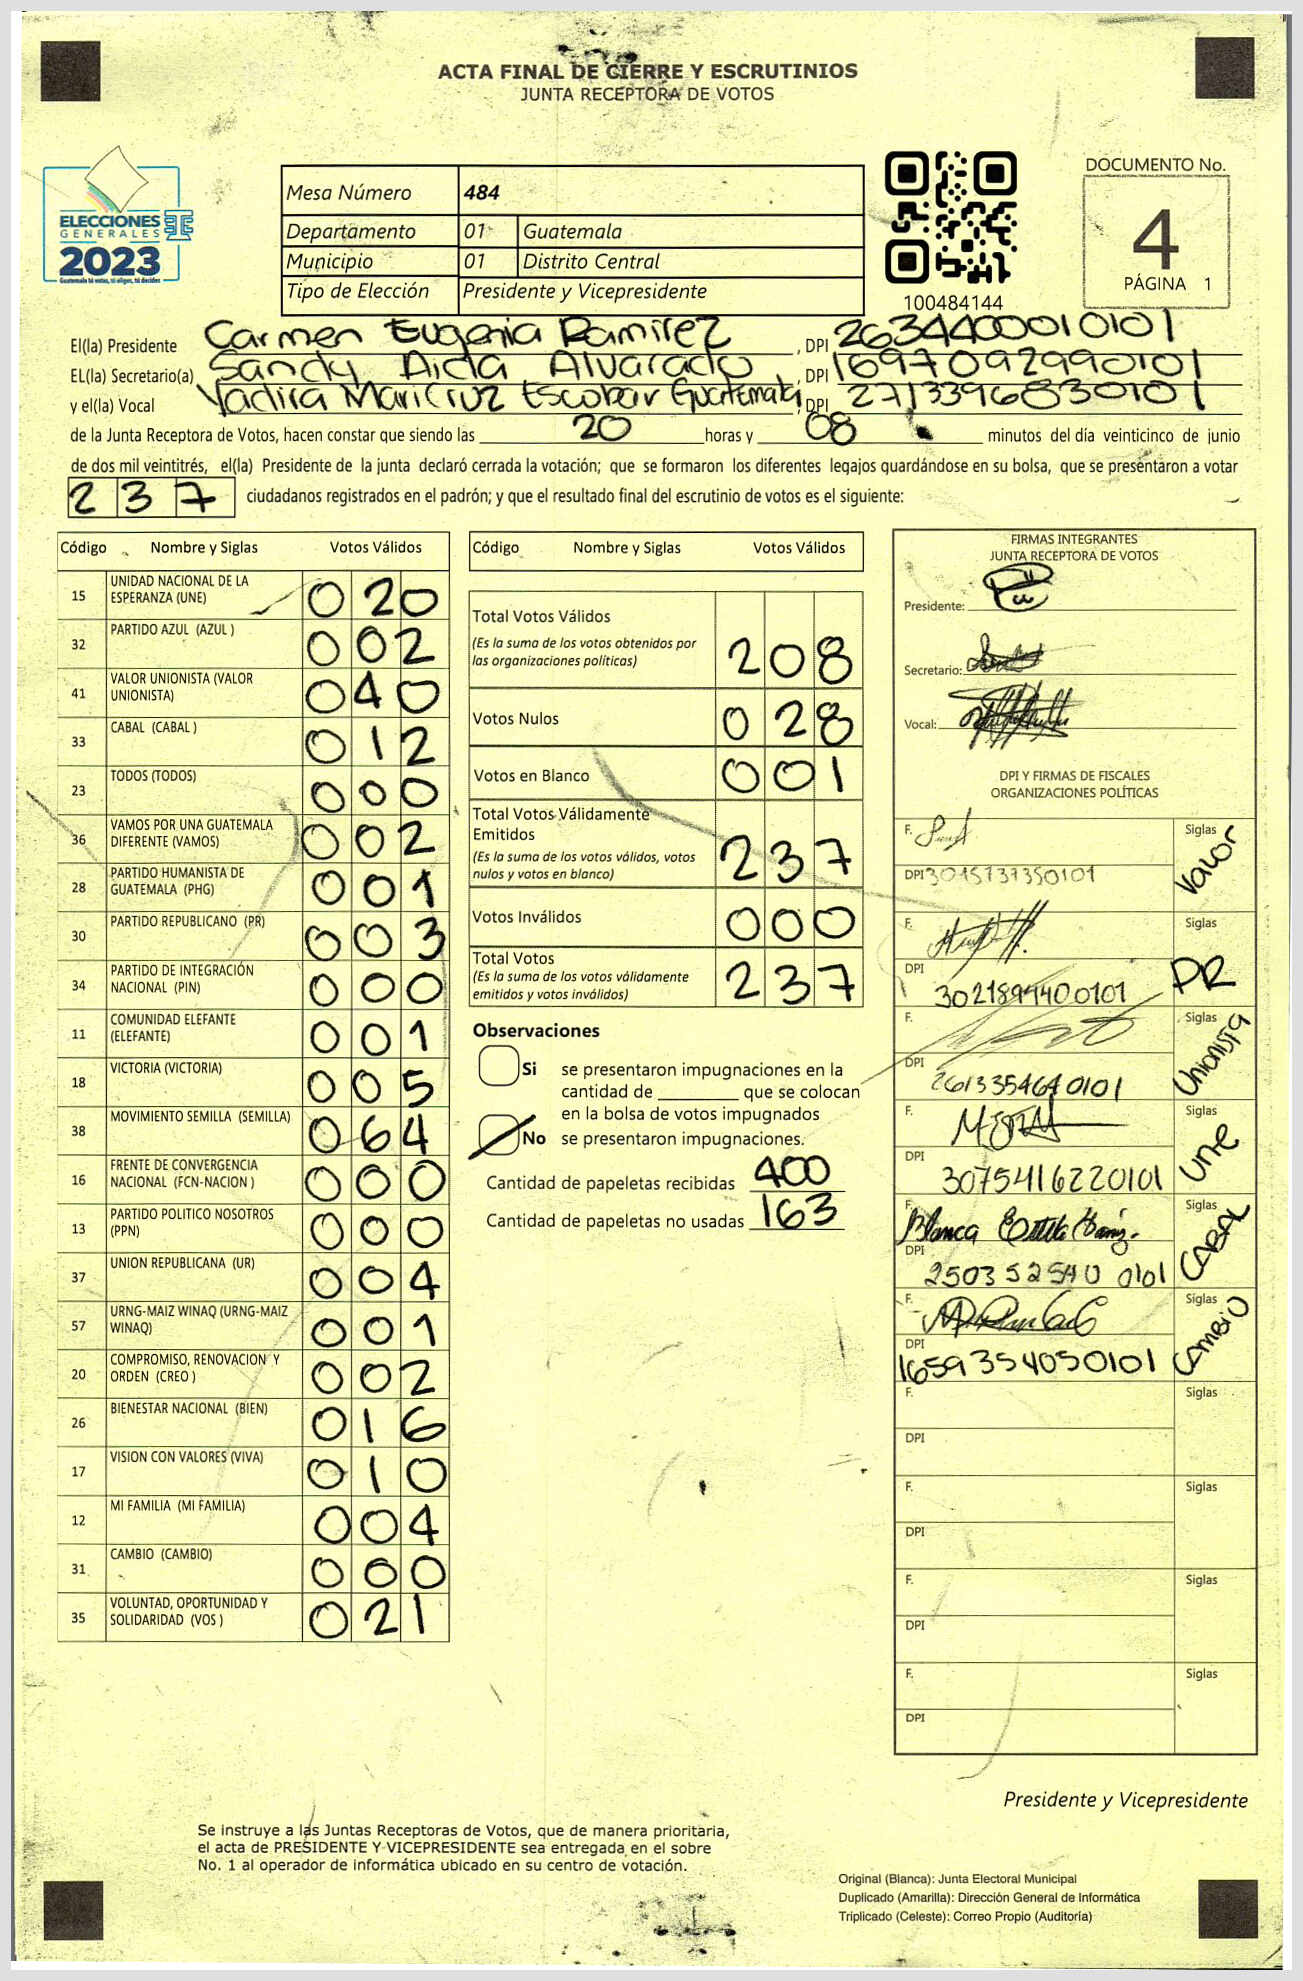 ACTA FINAL DE CIERRE Y ESCRUTINIOS
JUNTA RECEPTORA DE VOTOS
ELECCIONES
GENERALES
2023
Guatemala tú votas, tú eliges, tú decides
Mesa Número 484
Departamento 01 Guatemala
Municipio 01 Distrito Central
Tipo de Elección Presidente y Vicepresidente
100484144
DOCUMENTO No.
4
PÁGINA 1
El(la) Presidente Carmen Eugenia Ramirez, DPI 2634400010101
EL(la) Secretario(a) Sandy Aida Alvarado, DPI 1697092990101
y el(la) Vocal Yadira Maricruz Escobar Guatemala, DPI 2713396830101
de la Junta Receptora de Votos, hacen constar que siendo las 20 horas y 08 minutos del día veinticinco de junio
de dos mil veintitrés, el(la) Presidente de la junta declaró cerrada la votación; que se formaron los diferentes legajos guardándose en su bolsa, que se presentaron a votar
237 ciudadanos registrados en el padrón; y que el resultado final del escrutinio de votos es el siguiente:
Código Nombre y Siglas Votos Válidos
15 UNIDAD NACIONAL DE LA
ESPERANZA (UNE) 020
32 PARTIDO AZUL (AZUL ) 002
41 VALOR UNIONISTA (VALOR
UNIONISTA) 040
33 CABAL (CABAL ) 012
23 TODOS (TODOS) 000
36 VAMOS POR UNA GUATEMALA
DIFERENTE (VAMOS) 002
28 PARTIDO HUMANISTA DE
GUATEMALA (PHG) 001
30 PARTIDO REPUBLICANO (PR) 003
34 PARTIDO DE INTEGRACIÓN
NACIONAL (PIN) 000
11 COMUNIDAD ELEFANTE
(ELEFANTE) 001
18 VICTORIA (VICTORIA) 005
38 MOVIMIENTO SEMILLA (SEMILLA) 064
16 FRENTE DE CONVERGENCIA
NACIONAL (FCN-NACION ) 000
13 PARTIDO POLITICO NOSOTROS
(PPN) 000
37 UNION REPUBLICANA (UR) 004
57 URNG-MAIZ WINAQ (URNG-MAIZ
WINAQ) 001
20 COMPROMISO, RENOVACION Y
ORDEN (CREO ) 002
26 BIENESTAR NACIONAL (BIEN) 016
17 VISION CON VALORES (VIVA) 010
12 MI FAMILIA (MI FAMILIA) 004
31 CAMBIO (CAMBIO) 000
35 VOLUNTAD, OPORTUNIDAD Y
SOLIDARIDAD (VOS ) 021
Código Nombre y Siglas Votos Válidos
Total Votos Válidos
(Es la suma de los votos obtenidos por
las organizaciones políticas) 208
Votos Nulos 028
Votos en Blanco 001
Total Votos Válidamente
Emitidos
(Es la suma de los votos válidos, votos
nulos y votos en blanco) 237
Votos Inválidos 000
Total Votos
(Es la suma de los votos válidamente
emitidos y votos inválidos) 237
Observaciones
Si se presentaron impugnaciones en la
cantidad de ________ que se colocan
en la bolsa de votos impugnados
No se presentaron impugnaciones.
Cantidad de papeletas recibidas 400
Cantidad de papeletas no usadas 163
FIRMAS INTEGRANTES
JUNTA RECEPTORA DE VOTOS
Presidente:
Secretario:
Vocal:
DPI Y FIRMAS DE FISCALES
ORGANIZACIONES POLÍTICAS
F. Siglas Valor
DPI 3015737350101
F. Siglas PR
DPI 3021899400101
F. Siglas Unionista
DPI 2613354640101
F. Siglas UNE
DPI 3075416220101
F. Blanca Siglas CABAL
DPI 2503525400101
F. Siglas CAMBIO
DPI 1659354050101
F. Siglas
DPI
F. Siglas
DPI
F. Siglas
DPI
F. Siglas
DPI
Presidente y Vicepresidente
Se instruye a las Juntas Receptoras de Votos, que de manera prioritaria,
el acta de PRESIDENTE Y VICEPRESIDENTE sea entregada en el sobre
No. 1 al operador de informática ubicado en su centro de votación.
Original (Blanca): Junta Electoral Municipal
Duplicado (Amarilla): Dirección General de Informática
Triplicado (Celeste): Correo Propio (Auditoría)